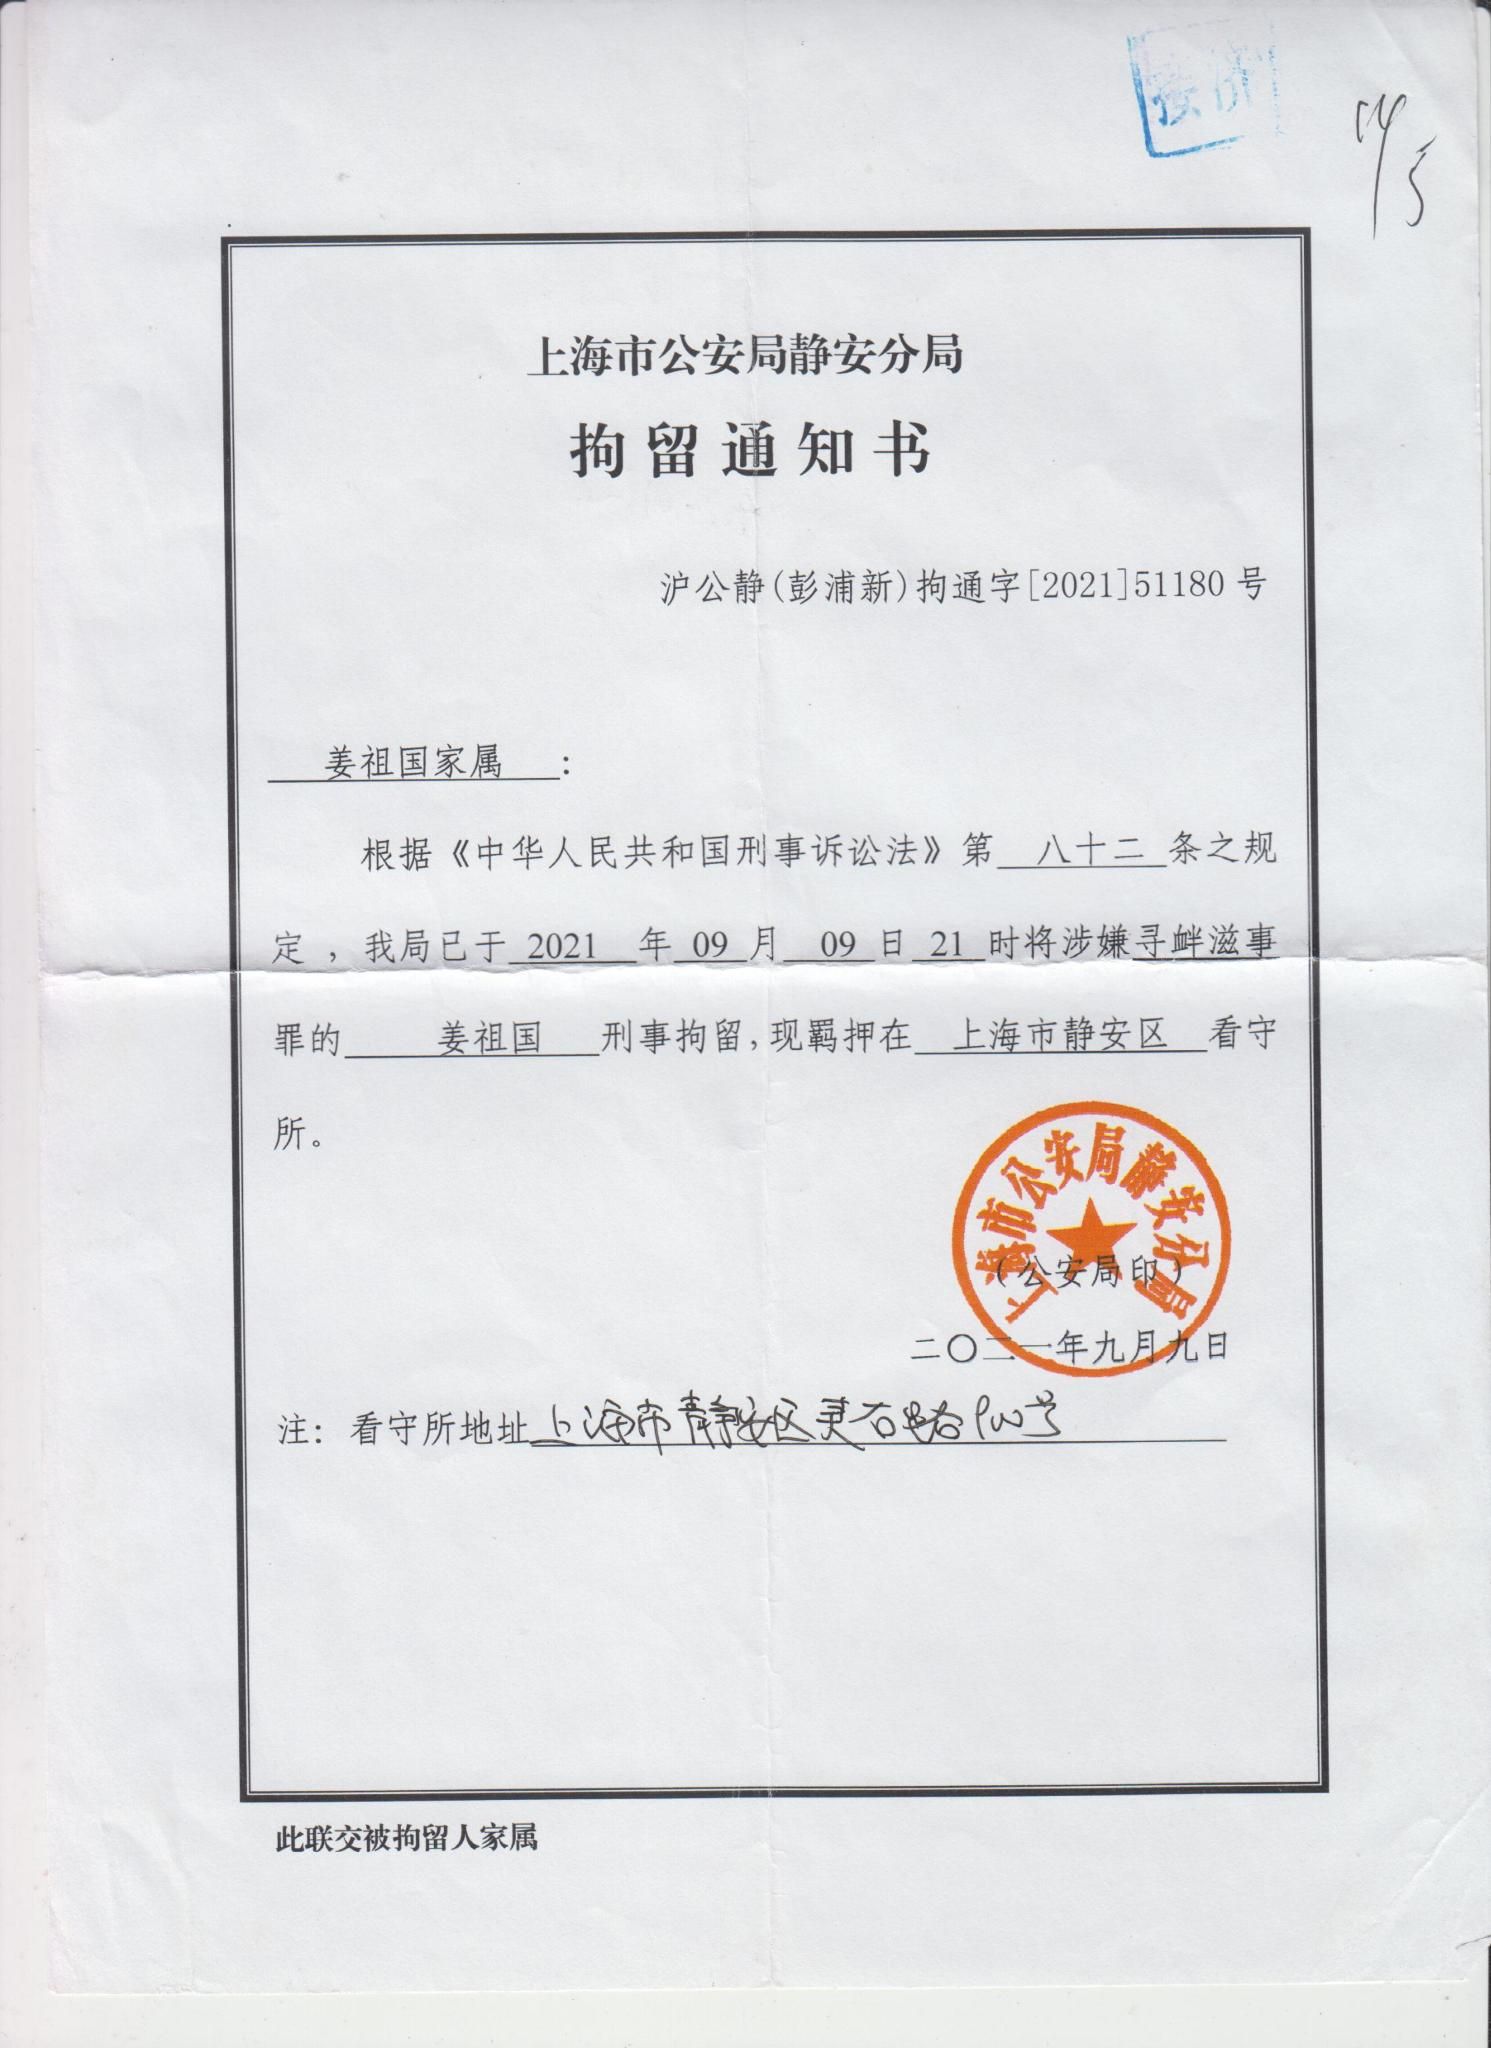 接济
上海市公安局静安分局
拘留通知书
沪公静(彭浦新)拘通字[2021]51180号
姜祖国家属：
根据《中华人民共和国刑事诉讼法》第八十二条之规
定，我局已于2021年09月09日21时将涉嫌寻衅滋事
罪的姜祖国刑事拘留,现羁押在上海市静安区看守
所。
上海市公安局静安分局
（公安局印）
二〇二一年九月九日
注：看守所地址上海市静安区灵石路号
此联交被拘留人家属